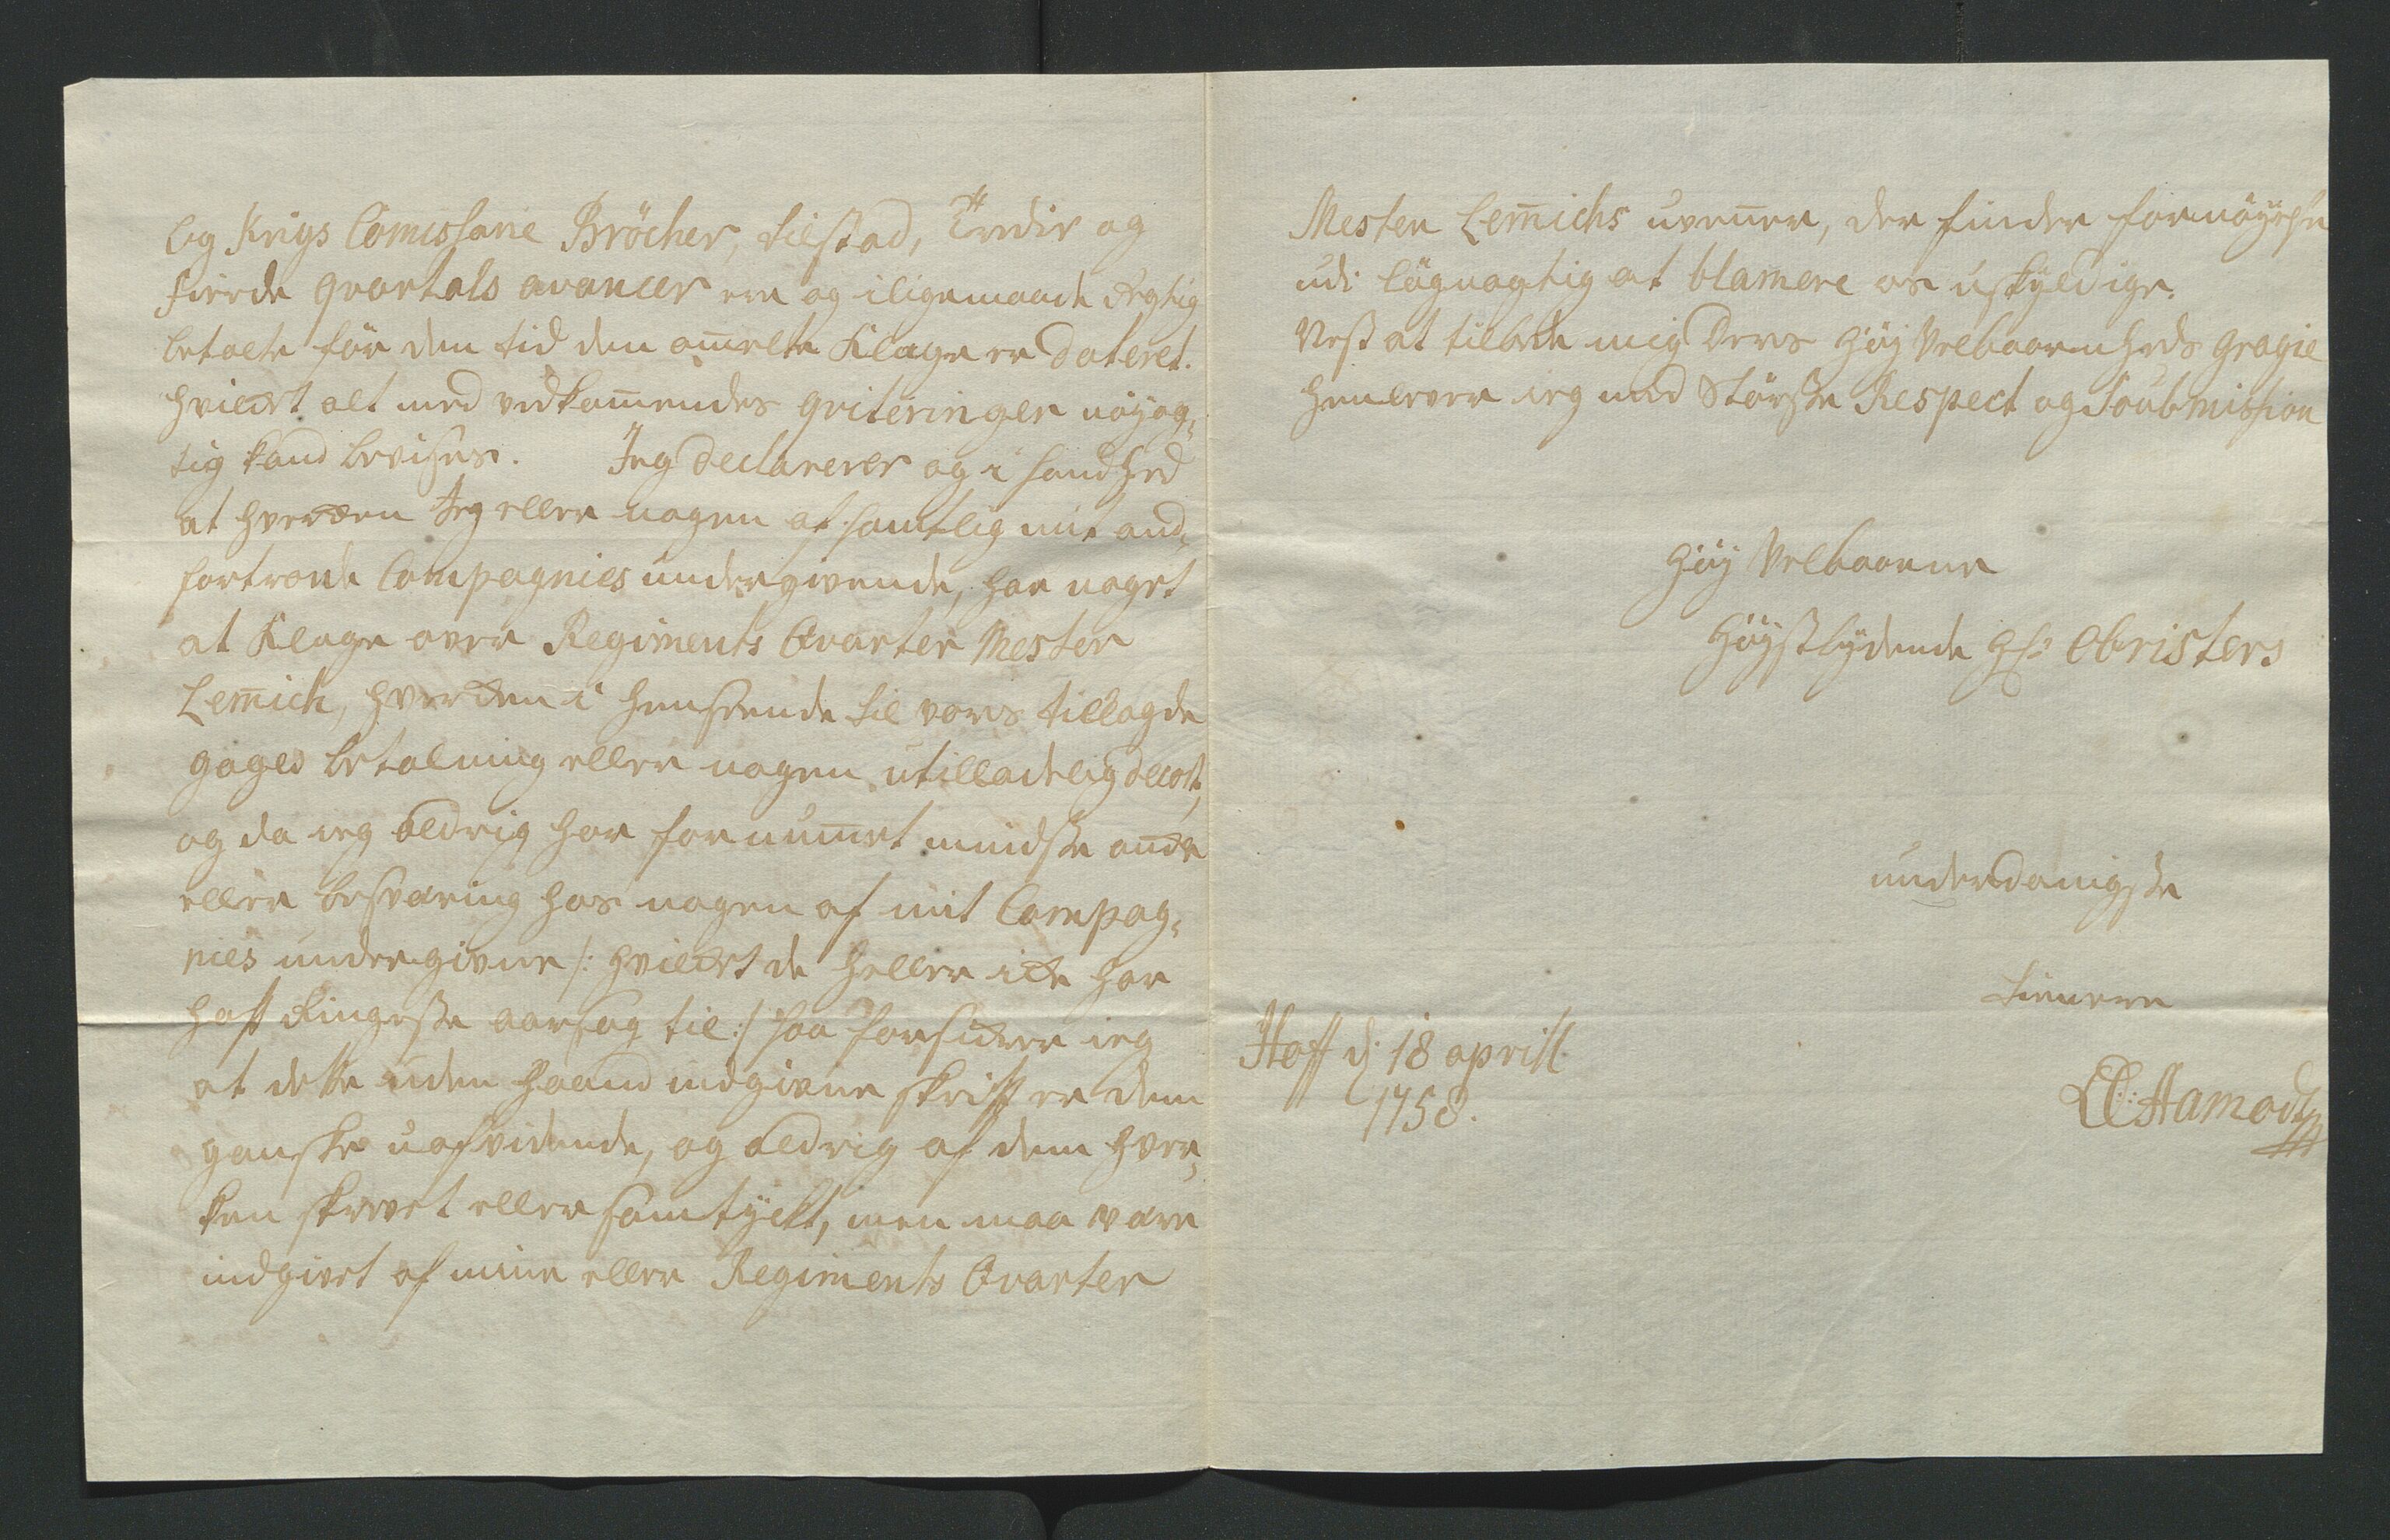 og Krigs Comissarie Bröcher, tilstad, Tredie og
fierde qvartals avancer ere og iligemaade Rigtig
betalte för den tid den om̅elte Klage er Dateret.
hvilcket alt med vedkom̅endes qviteringer nöyag¬
tig kand bevises. Jeg declarerer og i sandhed
at hvercken Jeg eller nogen af samtlig mit and¬
fortroede Compagnies undergivende, har noget
at Klage over Regiments Qvarter Mester
Lem̅ich, hvercken i henseende til vores tillagde
gages betalning eller nogen utilladelig decort,
og da ieg aldrig har fornum̅et mindste ancke
eller besværing hos nogen af mit Compag¬
nies undergivne /: hvilcket de heller icke har
haft Ringeste aarsag til :/ saa forsickrer ieg
at dette uden haand indgivne skrift er dem
ganske uafvidende, og aldrig af dem hver¬
ken skrevet eller samtyckt, men maa være
indgivet af mine eller Regiments Qvarter
Mester Lem̅ichs uven̅er, der finder fornöyelse
udi lögnagtig at blamere os uskyldige.
Nest at tilbede mig Deres Höy Velbaarenheds gragie
henlever ieg med Störste Respect og Soubmission
Höy Velbaarne
Höystbydende Hr: Obristers
underdanigste
tienere
Hoff d: 18 aprill
1758.
Aamodt